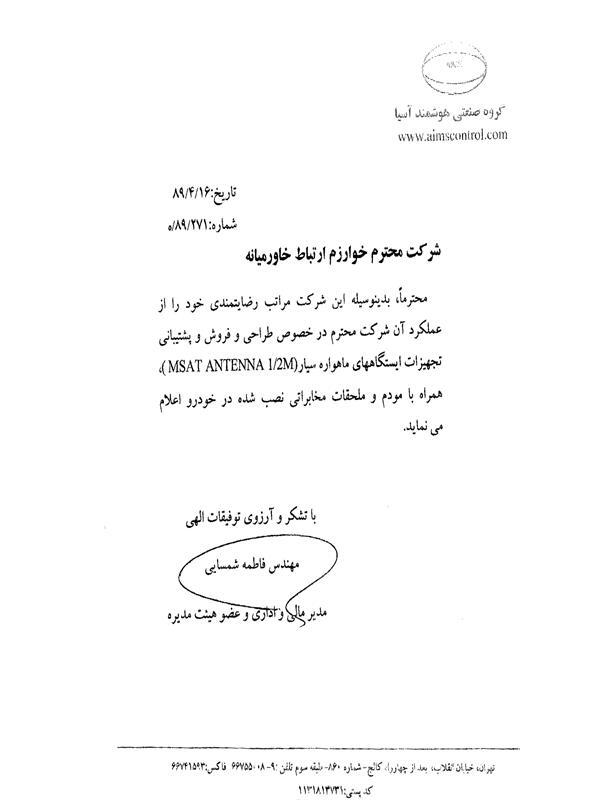 گروه صنعتی هوشمند آسیا
www.aimscontrol.com
تاریخ:۸۹/۴/۱۶
شماره:۵/۸۹/۲۷۱
شرکت محترم خوارزم ارتباط خاورمیانه
محترماً، بدینوسیله این شرکت مراتب رضایتمندی خود را از
عملکرد آن شرکت محترم در خصوص طراحی و فروش و پشتیبانی
تجهیزات ایستگاههای ماهواره سیار(MSAT ANTENNA 1/2M)،
همراه با مودم و ملحقات مخابراتی نصب شده در خودرو اعلام
می نماید.
با تشکر و آرزوی توفیقات الهی
مهندس فاطمه شمسایی
مدیر مالی و اداری و عضو هیئت مدیره
تهران، خیابان انقلاب، بعد از چهارراه کالج-شماره ۸۶۰-طبقه سوم تلفن :۹-۶۶۷۵۵۰۰۸ فاکس:۶۶۷۴۱۵۹۳
کد پستی:۱۱۳۱۸۱۳۷۳۱